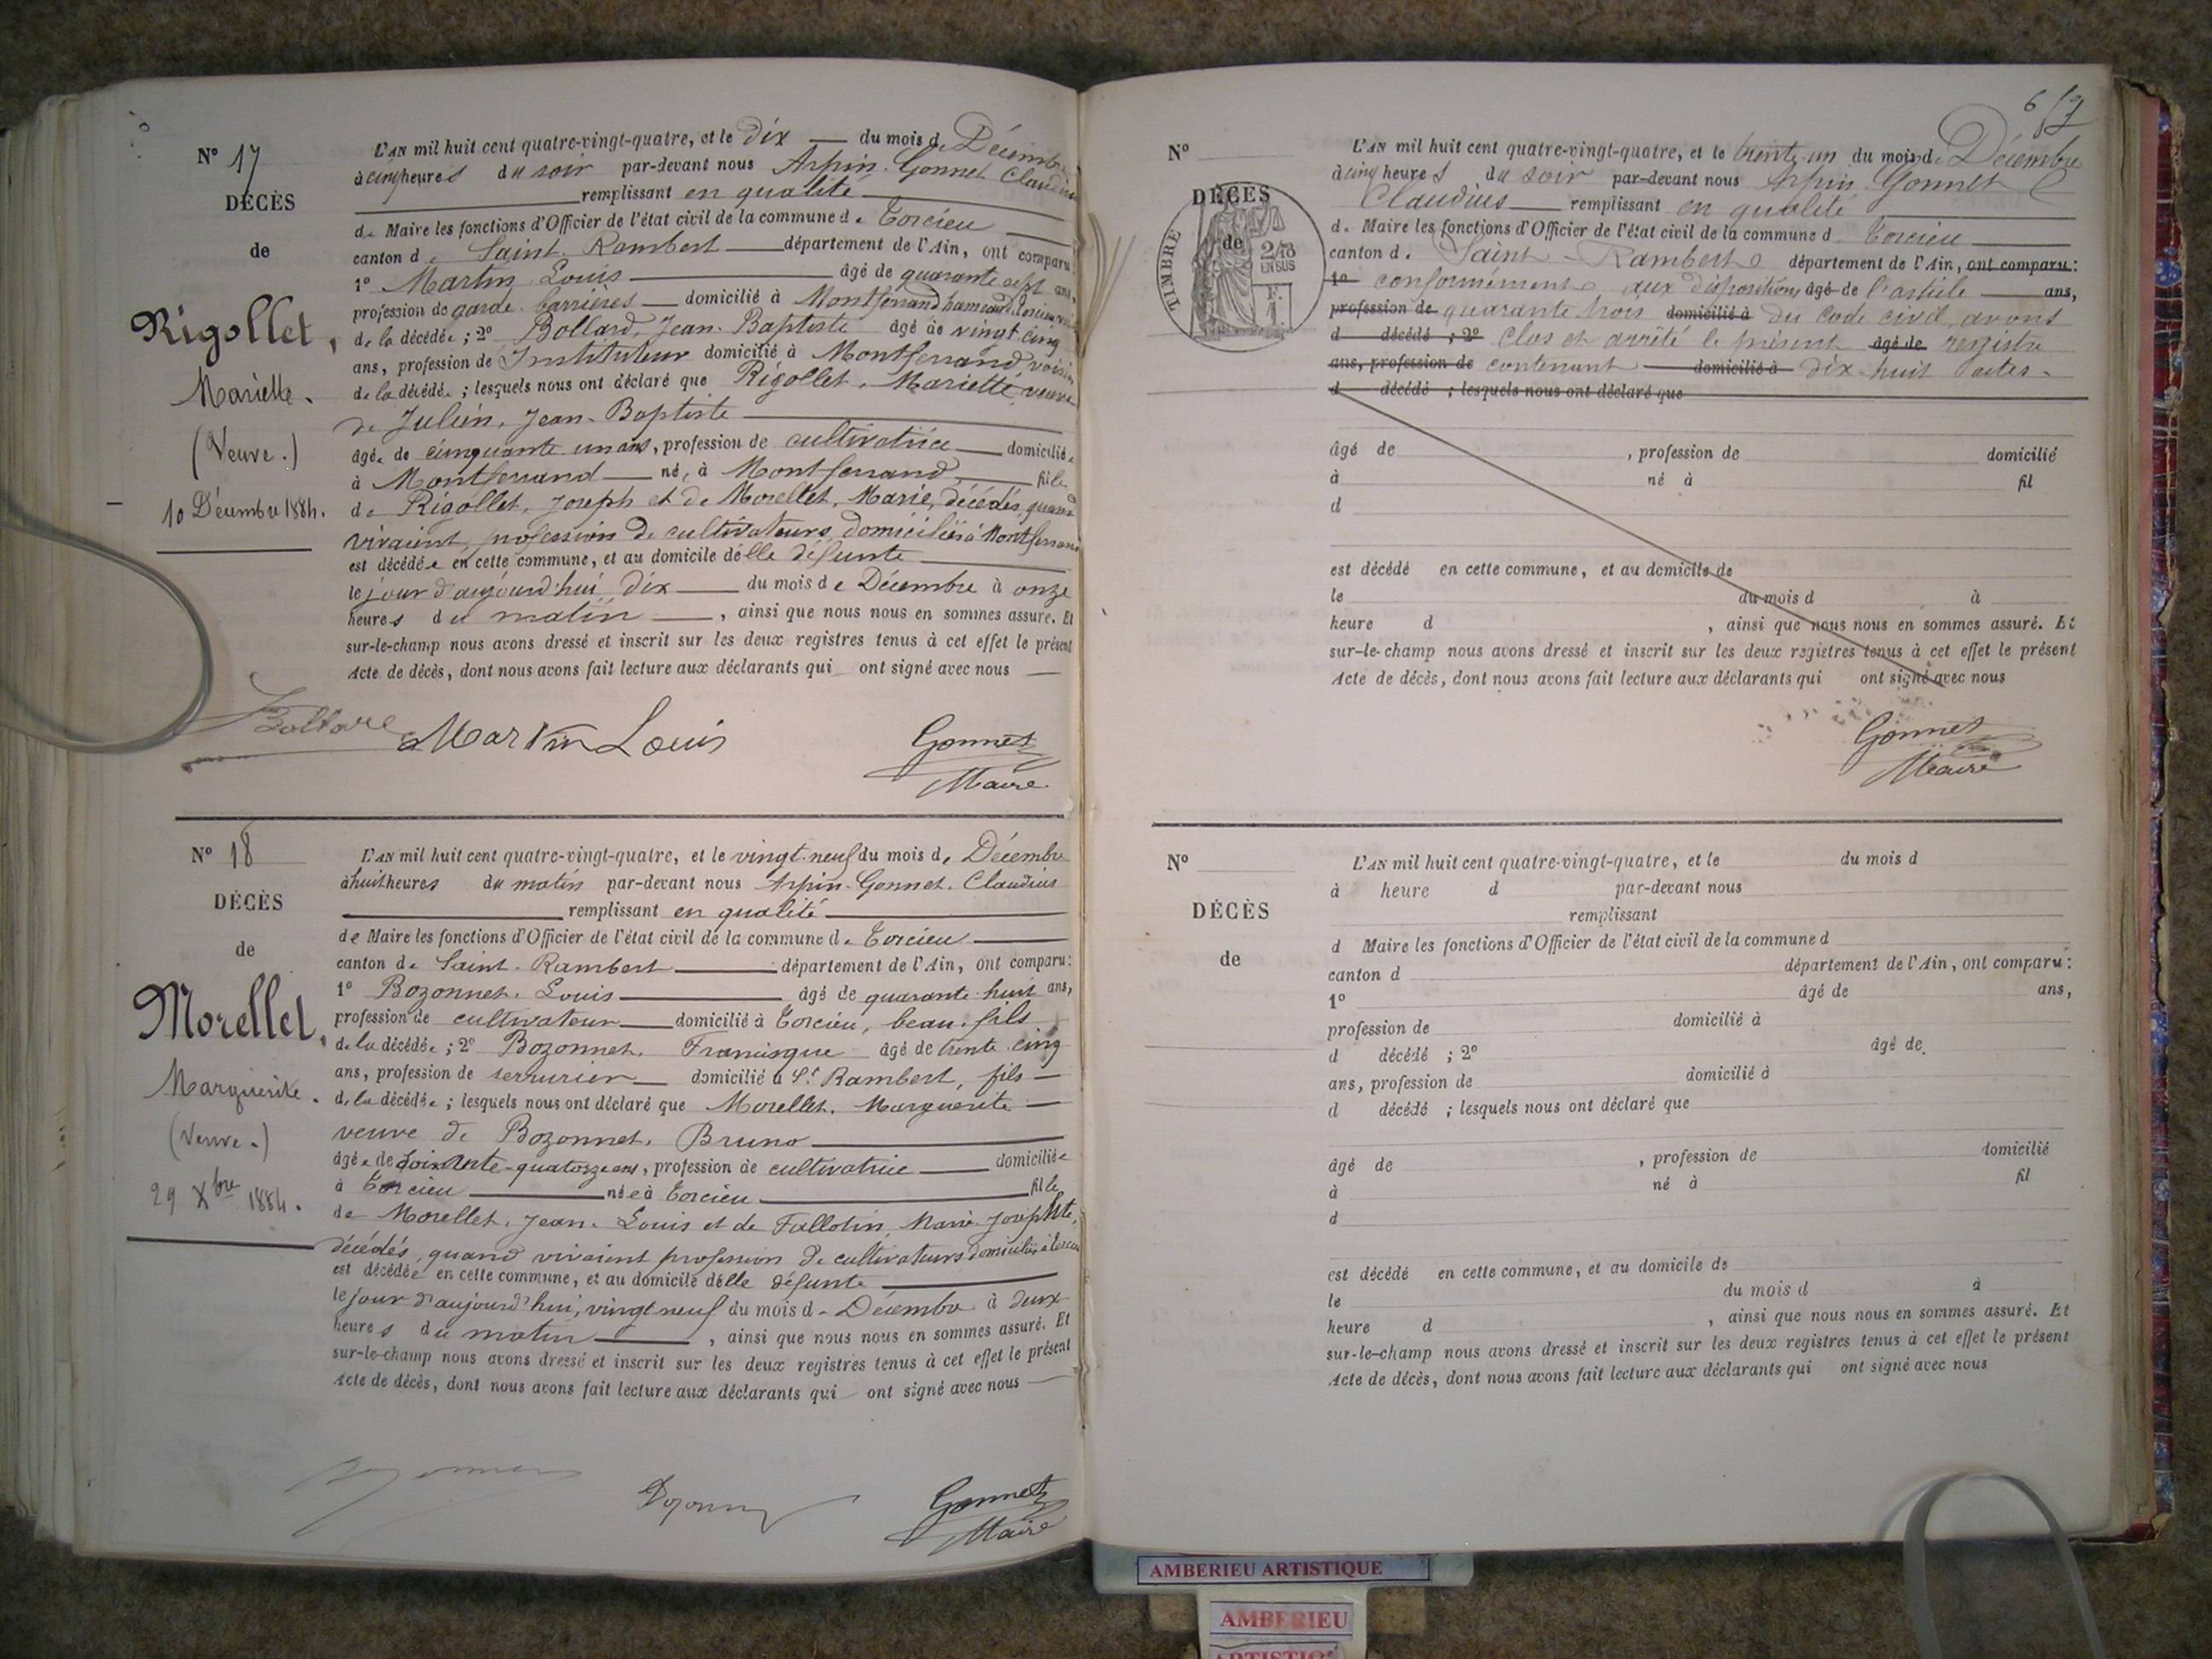 N° 17
DÉCÈS
de
Rigollet,
Mariette.
(Veuve.)
10 Décembre 1884.
L'AN mil huit cent quatre-vingt-quatre, et le dix du mois de Décembre
à cinq heures du soir par-devant nous Arpin-Gonnet Claudius
remplissant en qualité
de Maire les fonctions d'Officier de l'état civil de la commune de Torcieu
canton de Saint-Rambert département de l'Ain, ont comparu:
1° Martin Louis âgé de quarante sept ans,
profession de garde-barrières domicilié à Montferrand hameau de Torcieu
de la décédée; 2° Bollard, Jean-Baptiste âgé de vingt cinq
ans, profession de Instituteur domicilié à Montferrand voisin
de la décédée; lesquels nous ont déclaré que Rigollet, Mariette, veuve
de Julien, Jean-Baptiste
âgée de cinquante un ans, profession de cultivatrice domiciliée
à Montferrand née à Montferrand, fille
de Rigollet, Joseph et de Morellet, Marie, décédés, quand
vivaient, profession de cultivateurs, domiciliés à Montferrand
est décédée en cette commune, et au domicile de elle défunte
le jour d'aujourd'hui dix du mois de Décembre à onze
heures du matin, ainsi que nous nous en sommes assuré. Et
sur-le-champ nous avons dressé et inscrit sur les deux registres tenus à cet effet le présent
Acte de décès, dont nous avons fait lecture aux déclarants qui ont signé avec nous
Martin Louis
Gonnet
Maire
N° 18
DÉCÈS
de
Morellet,
Marguerite.
(Veuve.)
29 Xbre 1884.
L'AN mil huit cent quatre-vingt-quatre, et le vingt-neuf du mois de Décembre
à huit heures du matin par-devant nous Arpin-Gonnet, Claudius
remplissant en qualité
de Maire les fonctions d'Officier de l'état civil de la commune de Torcieu
canton de Saint-Rambert département de l'Ain, ont comparu:
1° Bozonnet, Louis âgé de quarante-huit ans,
profession de cultivateur domicilié à Torcieu, beau-fils
de la décédée; 2° Bozonnet, Francisque âgé de trente cinq
ans, profession de serrurier domicilié à St Rambert, fils
de la décédée; lesquels nous ont déclaré que Morellet, Marguerite
veuve de Bozonnet, Bruno
âgée de soixante-quatorze ans, profession de cultivatrice domiciliée
à Torcieu née à Torcieu fille
de Morellet, Jean-Louis et de Fallotin, Marie-Josephte,
décédés, quand vivaient profession de cultivateurs domiciliés à Torcieu
est décédée en cette commune, et au domicile de elle défunte
le jour d'aujourd'hui, vingt neuf du mois de Décembre à deux
heures du matin, ainsi que nous nous en sommes assuré. Et
sur-le-champ nous avons dressé et inscrit sur les deux registres tenus à cet effet le présent
Acte de décès, dont nous avons fait lecture aux déclarants qui ont signé avec nous
Gonnet
Maire
N°
DÉCÈS
de
TIMBRE
2/10
EN SUS
L'AN mil huit cent quatre-vingt-quatre, et le trente-un du mois de Décembre
à cinq heures du soir par-devant nous Arpin-Gonnet
Claudius remplissant en qualité
de Maire les fonctions d'Officier de l'état civil de la commune d Torcieu
canton de Saint-Rambert département de l'Ain, ont comparu:
1° conformément aux dispositions âgé de l'article ans,
profession de quarante trois domicilié à du Code civil, avons
d décédé; 2° Clos et arrêté le présent âgé de registre
ans, profession de contenant domicilié à dix-huit actes.
d décédé; lesquels nous ont déclaré que
âgé de, profession de domicilié
à né à fil
d
est décédé en cette commune, et au domicile de
le du mois d à
heure d, ainsi que nous nous en sommes assuré. Et
sur-le-champ nous avons dressé et inscrit sur les deux registres tenus à cet effet le présent
Acte de décès, dont nous avons fait lecture aux déclarants qui ont signé avec nous
Gonnet
Maire
N°
DÉCÈS
de
L'AN mil huit cent quatre-vingt-quatre, et le du mois d
à heure d par-devant nous
remplissant
d Maire les fonctions d'Officier de l'état civil de la commune d
canton d département de l'Ain, ont comparu:
1° âgé de ans,
profession de domicilié à
d décédé; 2° âgé de
ans, profession de domicilié à
d décédé; lesquels nous ont déclaré que
âgé de, profession de domicilié
à né à fil
d
est décédé en cette commune, et au domicile de
le du mois d à
heure d, ainsi que nous nous en sommes assuré. Et
sur-le-champ nous avons dressé et inscrit sur les deux registres tenus à cet effet le présent
Acte de décès, dont nous avons fait lecture aux déclarants qui ont signé avec nous
AMBERIEU ARTISTIQUE
AMBERIEU
ARTISTIQUE